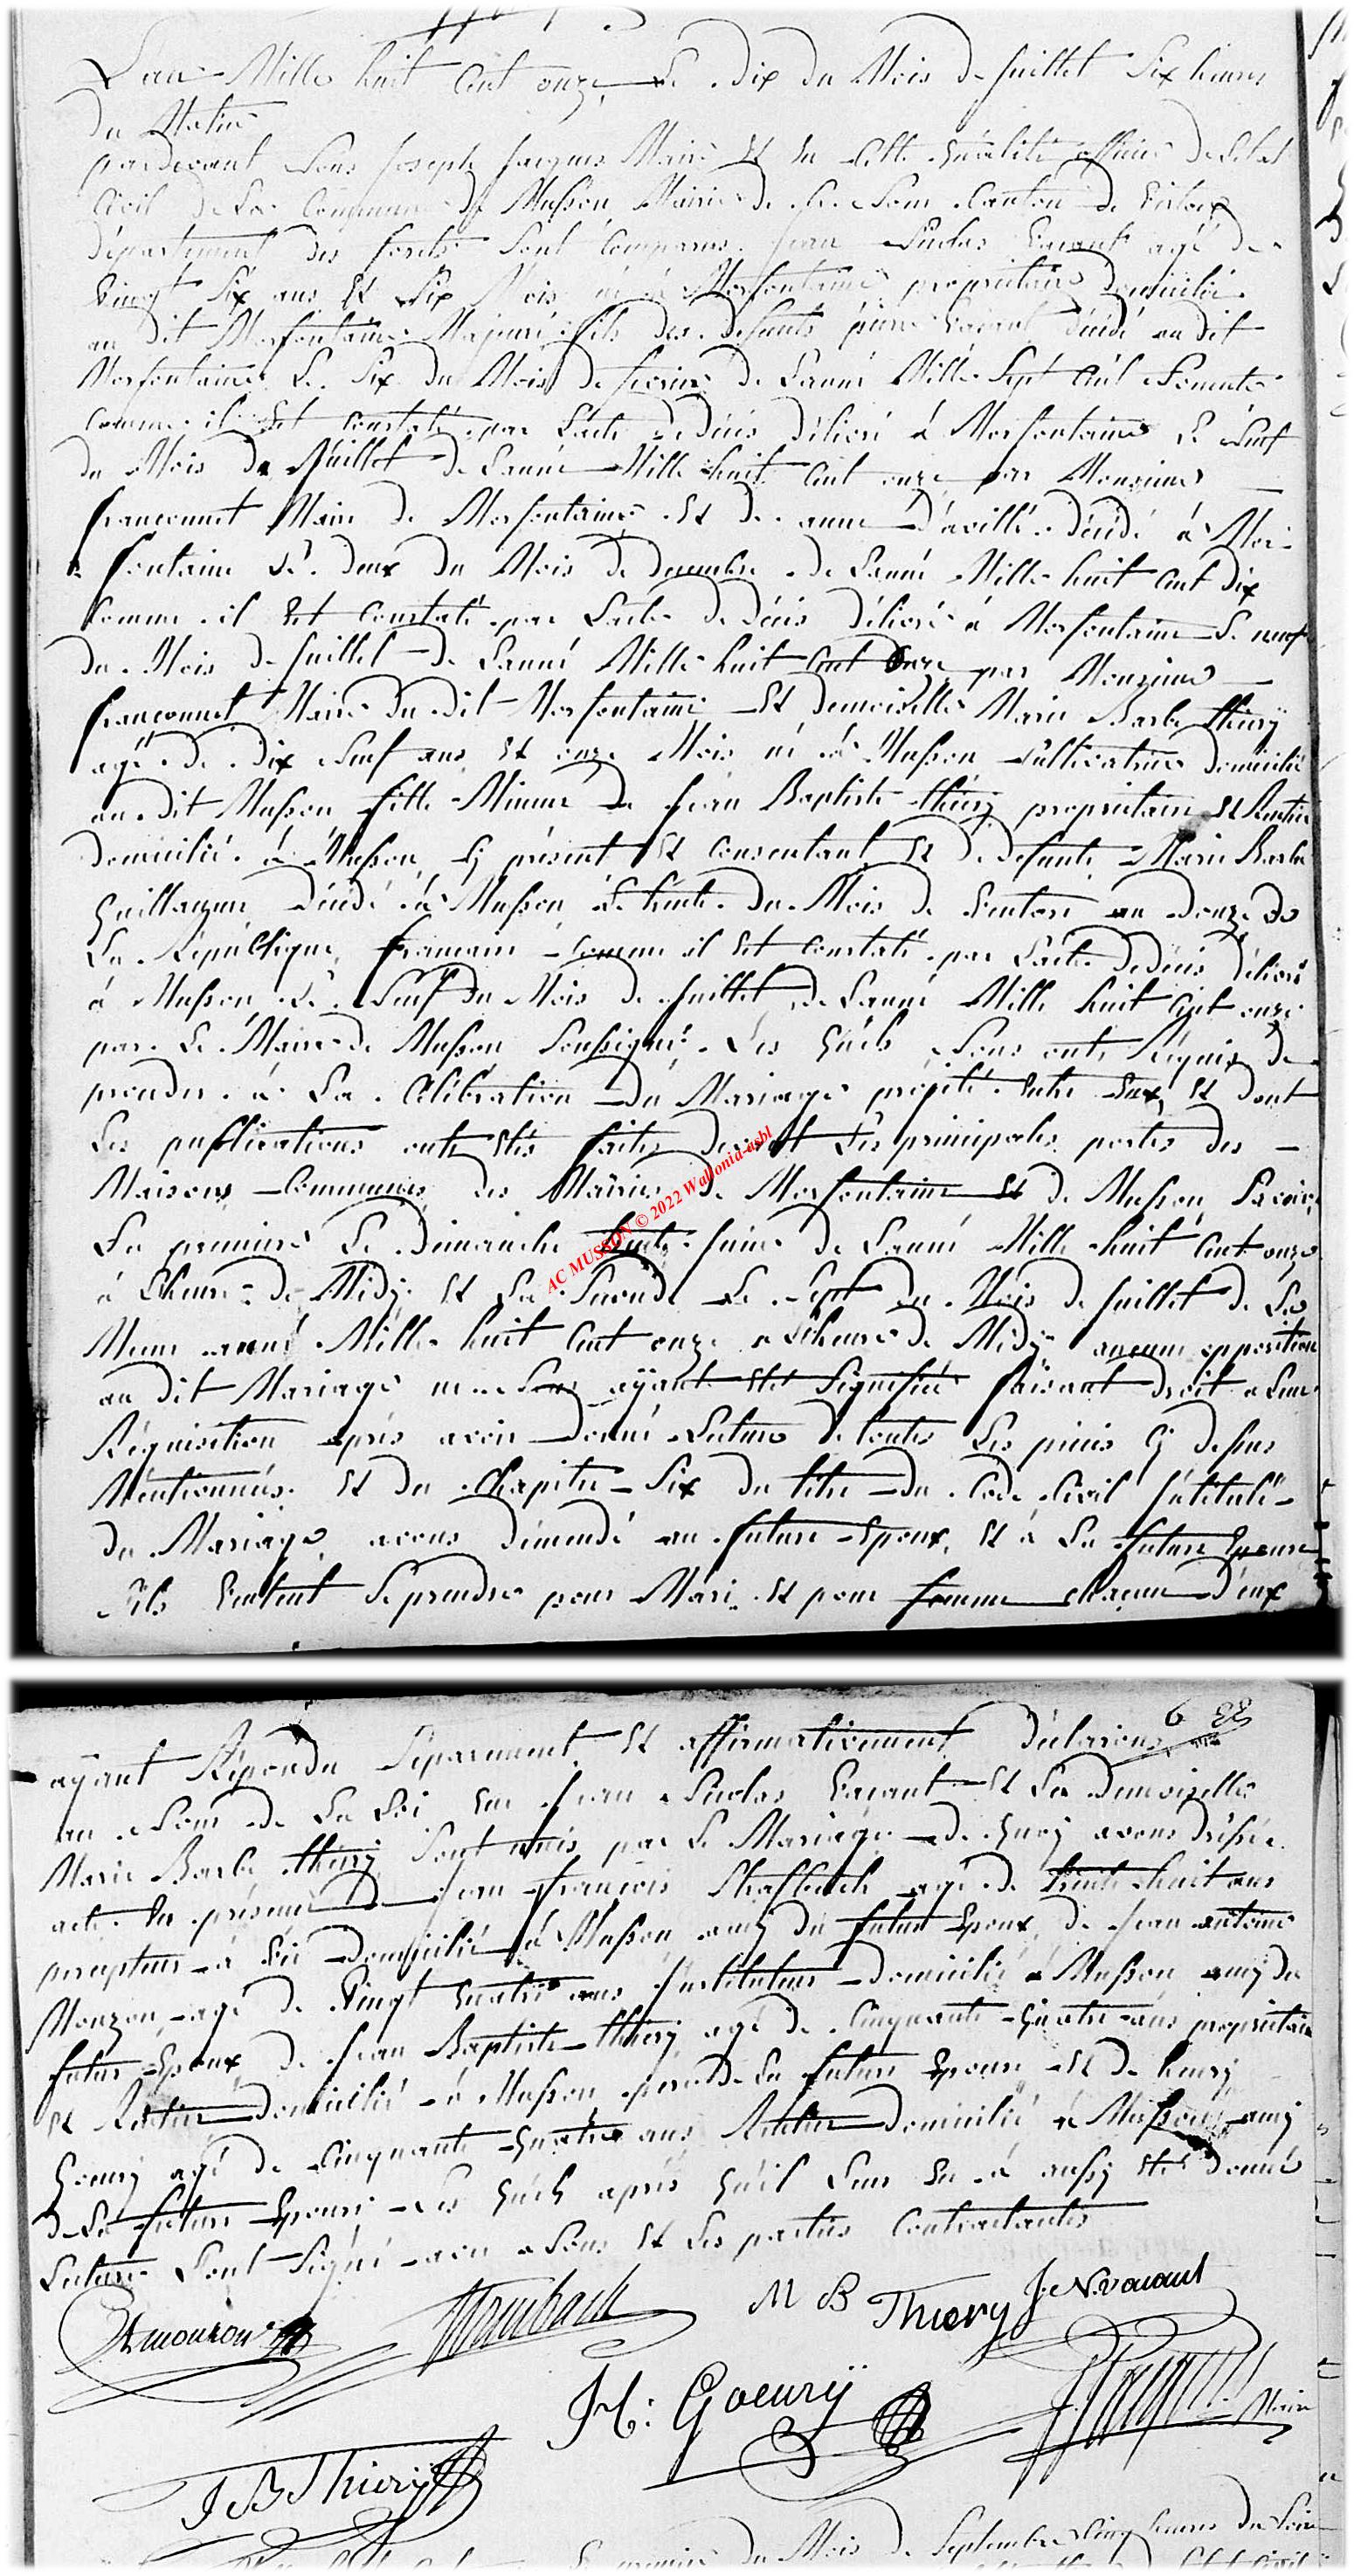 L'an Mille huit Cent onze Le dix du Mois de Juillet Six heures
du Matin
pardevant Nous Joseph Jacques Maire Et En Cette qualité officier de L'etat
Civil de La Commune de Musson Mairie de Ce Nom Canton de Virton
département des forets Sont Comparus Jean Nicolas Vacant agé de
Vingt Six ans Et Six Mois né à Morfontaine propriétaire domicilié
au dit Morfontaine Majeur fils des defunts pierre Vacant décédé au dit
Morfontaine Le Six du Mois de fevrier de L'année Mille Sept Cent
Comme il Est Constaté par L'acte de décès délivré à Morfontaine Le Neuf
du Mois de Juillet de L'année Mille huit Cent onze par Monsieur
franconnet Maire de Morfontaine Et de anne d'aville décédé à Mor-
fontaine Le deux du Mois de decembre de L'année Mille huit Cent dix
Comme il Est Constaté par L'acte de décès délivré à Morfontaine Le neuf
du Mois de Juillet de L'année Mille huit Cent Onze par Monsieur
franconnet Maire du dit Morfontaine Et demoiselle Marie Barbe thiery
agé de dix Neuf ans Et onze Mois né à Musson Cultivatrice domicilié
au dit Musson fille Mineure de Jean Baptiste thiery propriétaire Et Rentier
domicilié à Musson Cy présent Et Consentant Et de defunte Marie Barbe
Guillaume décédé à Musson Le trente du Mois de Ventose an douze de
La République francaise Comme il Est Constaté par L'acte de décès délivré
à Musson Le Neuf du Mois de Juillet de L'année Mille huit Cent onze
par Le Maire de Musson Soussigné Les quels Nous onts Réquis de
proceder à La Célébration du Mariage projeté Entre Eux Et dont
Les publications onts Etés faites devant Les principales portes des
Maisons Communes des Mairies de Morfontaine Et de Musson Savoir
La premiere Le dimanche trente Juin de L'année Mille huit Cent onze
à L'heure de Midy Et La Seconde Le Sept du Mois de Juillet de La
Meme année Mille huit Cent onze a L'heure de Midy aucune opposition
au dit Mariage ne Nous ayant Eté Signifiée faisant droit a Leur
Réquisition après avoir donné Lecture de toutes Les pieces Cy dessus
Mentionnées Et du Chapitre Six du titre du Code Civil Intitulé
du Mariage avons démendé au future Epoux Et à La future Epouse
S'ils Veulent Se prendre pour Mari Et pour femme chacune d'eux
6
ayant Répondu Séparément Et affirmativement Déclarons
au Nom de La Loi que Jean Nicolas Vacant Et La demoiselle
Marie Barbe thiery Sont unis par Le Mariage de quoy avons dréssée
acte En présence de Jean François agé de trente huit ans
percepteur à Vie domicilié à Musson amy du futur Epoux de Jean antoine
Mouzon agé de Vingt quatre ans Instituteur domicilié à Musson amy du
futur Epoux de Jean Baptiste thiery agé de Cinquante quatre ans propriétaire
Et Rentier domicilié à Musson pere de La future Epouse Et de henry
Goeury agé de Cinquante quatre ans Rentier domicilié à Musson amy
de La future Epouse Les quels après qu'il Leur En à aussy Eté donné
Lecture Sont Signé avec Nous Et Les parties Contractantes
M B Thiery J: N. vacant
H: Goeurÿ
Maire
J B Thiery
premier du Mois de Septembre Cinq heures du Soir
AC MUSSON © 2022 Wallonia-asbl